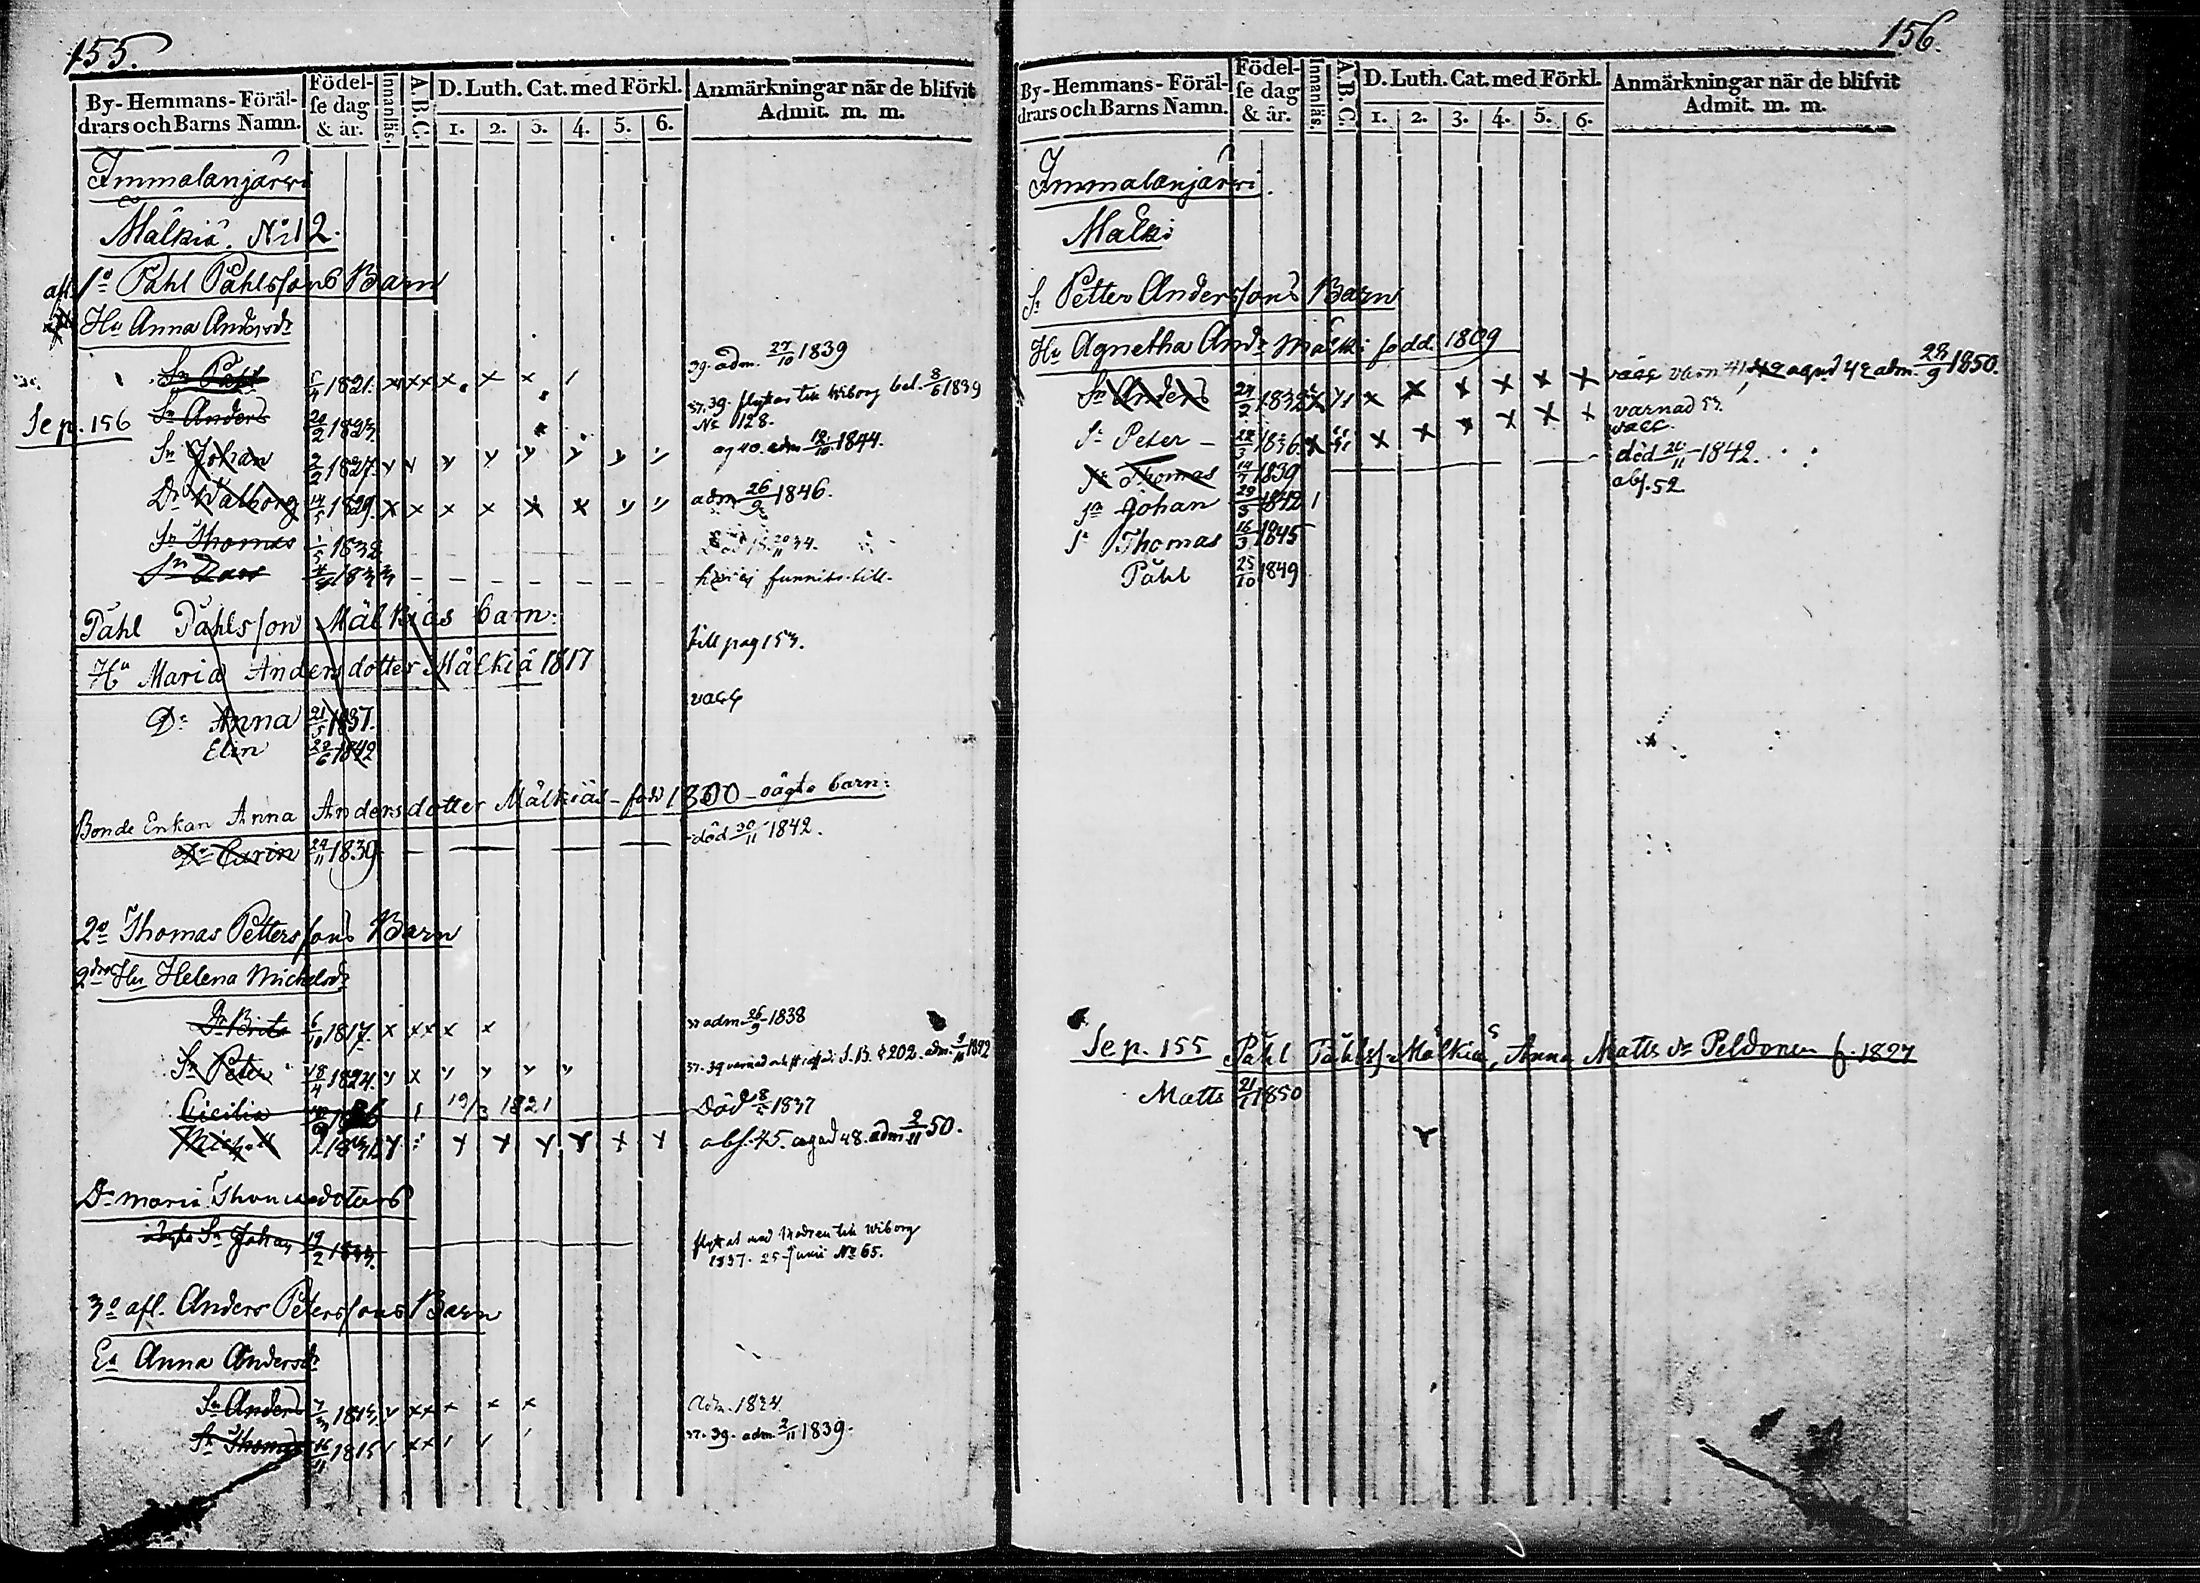 155.
By-Hemmans-Föräl-
drars och Barns Namn.
Födel-
se dag
& år.
Innanläs.
A.B.C.
D. Luth. Cat. med Förkl.
1. 2. 3. 4. 5. 6.
Anmärkningar när de blifvit
Admit. m. m.
Immalanjärvi
Mälkiä. No 12.
afl. 1o Påhl Påhlssons Barn
Hu Anna Andersdr
Sn Påhl 1821. x xx x x x 39. adm. 27/10 1839
Sep. 156 Sn Anders 20/2 1823 37.39. flyttat till Wiborg bet. 8/6 1839
No 128.
Sn Johan 2/2 1827 adm 18/10 1844.
Dr Walborg 14/5 1829. x x x x x x adm 26/9 1846.
Sn Thomas 1/5 1832
Sn 1833 ej funnits till.
Påhl Påhlsson Mälkiäs barn:
till pag 153.
Hu Maria Andersdotter Mälkiä 1817
vacc
Dr Anna 21/5 1837.
Elin 22/6 1842
Bonde Enkan Anna Andersdotter Mälkiäs - född 1800 - oägta barn:
Dr Carin 24/11 1839 död 30/11 1842.
2o Thomas Petterssons Barn
2dra Hu Helena Michelsdr
Dr Brita 6/10 1817. x xx x x adm 26/9 1838
Sn Peter 18/4 1824. S.B. § 202. adm. 1842
Cicilia 1 19/3 1821 Död 8/5 1837
Michell 1831 abs. 45. agad 48. adm 2/11 50.
Dr Maria Thomasdotters
oägta Sn Johan 19/2 1833. flyttat med modren till Wiborg
1837. 25 Junii No 65.
3o afl. Anders Peterssons Barn
Ea Anna Andersdr
Sn Anders 1813 xx x x x Adm. 1834
Sn Thomas 16/11 1815 xx 37. 39. adm. 2/11 1839.
156.
By-Hemmans-Föräl-
drars och Barns Namn.
Födel-
se dag
& år.
Innanläs.
A.B.C.
D. Luth. Cat. med Förkl.
1. 2. 3. 4. 5. 6.
Anmärkningar när de blifvit
Admit. m. m.
Immalanjärvi.
Mälki
Sn Petter Anderssons Barn
Hu Agnetha Andr Mälki född 1809
Sn Anders 24/2 1832 x x x x x x vacc 42 adm. 28/9 1850.
varnad 53.
Sn Peter - 22/3 1836. x x x x x x vacc.
Sn Thomas 14/7 1839 död 26/11 1842.
Sn Johan 29/5 1842 1 abs. 52
Sn Thomas 16/3 1845
Påhl 25/10 1849
Sep. 155 Påhl Påhlss. Mälkiä, Anna Matts dr Peldonen f. 1827
Matts 21/1 1850